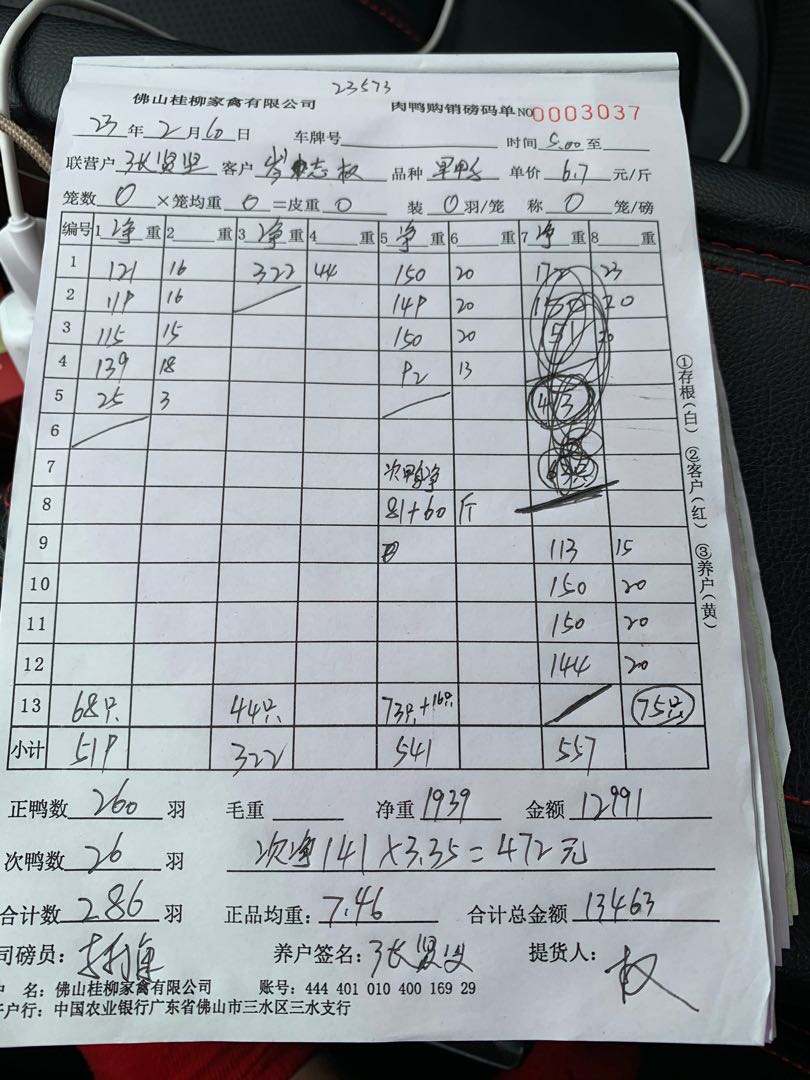 23573
佛山桂柳家禽有限公司 肉鸭购销磅码单 NO 0003037
23年2月10日 车牌号 时间 5.00至
联营户 张贤坚 客户 志权 品种 单价 6.7 元/斤
笼数 0 ×笼均重 0 =皮重 0 装 0 羽/笼 称 0 笼/磅
编号 1 净 重 2 重 3 净 重 4 重 5 净 重 6 重 7 净 重 8 重
1 121 16 322 44 150 20 172 23
2 119 16 149 20 20
3 115 15 150 20 151 20
4 139 18 92 13
5 25 3 473
6
7 次鸭净
8 81+60 斤
9 113 15
10 150 20
11 150 20
12 144 20
13 68只 44只 73只+16只 75只
小计 519 322 541 557
正鸭数 260 羽 毛重 净重 1939 金额 12991
次鸭数 26 羽 次净141×3.35=472元
合计数 286 羽 正品均重: 7.46 合计总金额 13463
司磅员: 养户签名: 张贤坚 提货人: 权
户 名: 佛山桂柳家禽有限公司 账号: 444 401 010 400 169 29
开户行: 中国农业银行广东省佛山市三水区三水支行
①存根(白) ②客户(红) ③养户(黄)